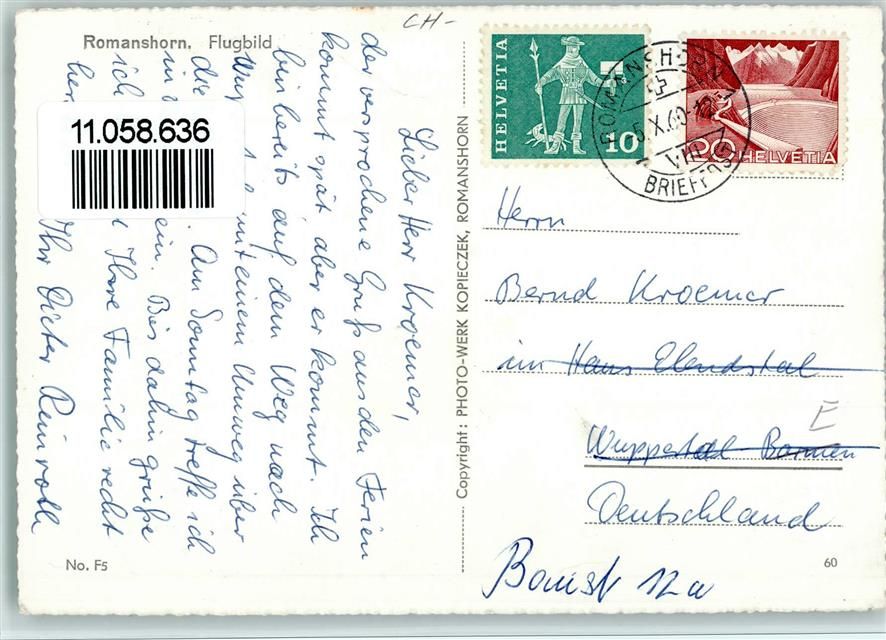 Romanshorn. Flugbild
CH-
Lieber Herr Kroemer,
der versprochene Gruß aus den Ferien
kommt spät aber er kommt. Ich
bin bereits auf dem Weg nach
mit einem Umweg über
die Am Sonntag treffe ich
in ein. Bis dahin grüße
ich Ihre Familie recht
Ihr Dieter Reinroth
11.058.636
No. F5
Copyright: PHOTO-WERK KOPIECZEK, ROMANSHORN
HELVETIA
10
20 HELVETIA
ROMANSHORN
BRIEF
Herrn
Bernd Kroemer
im Haus Elendstal
E
Wuppertal Barmen
Deutschland
60